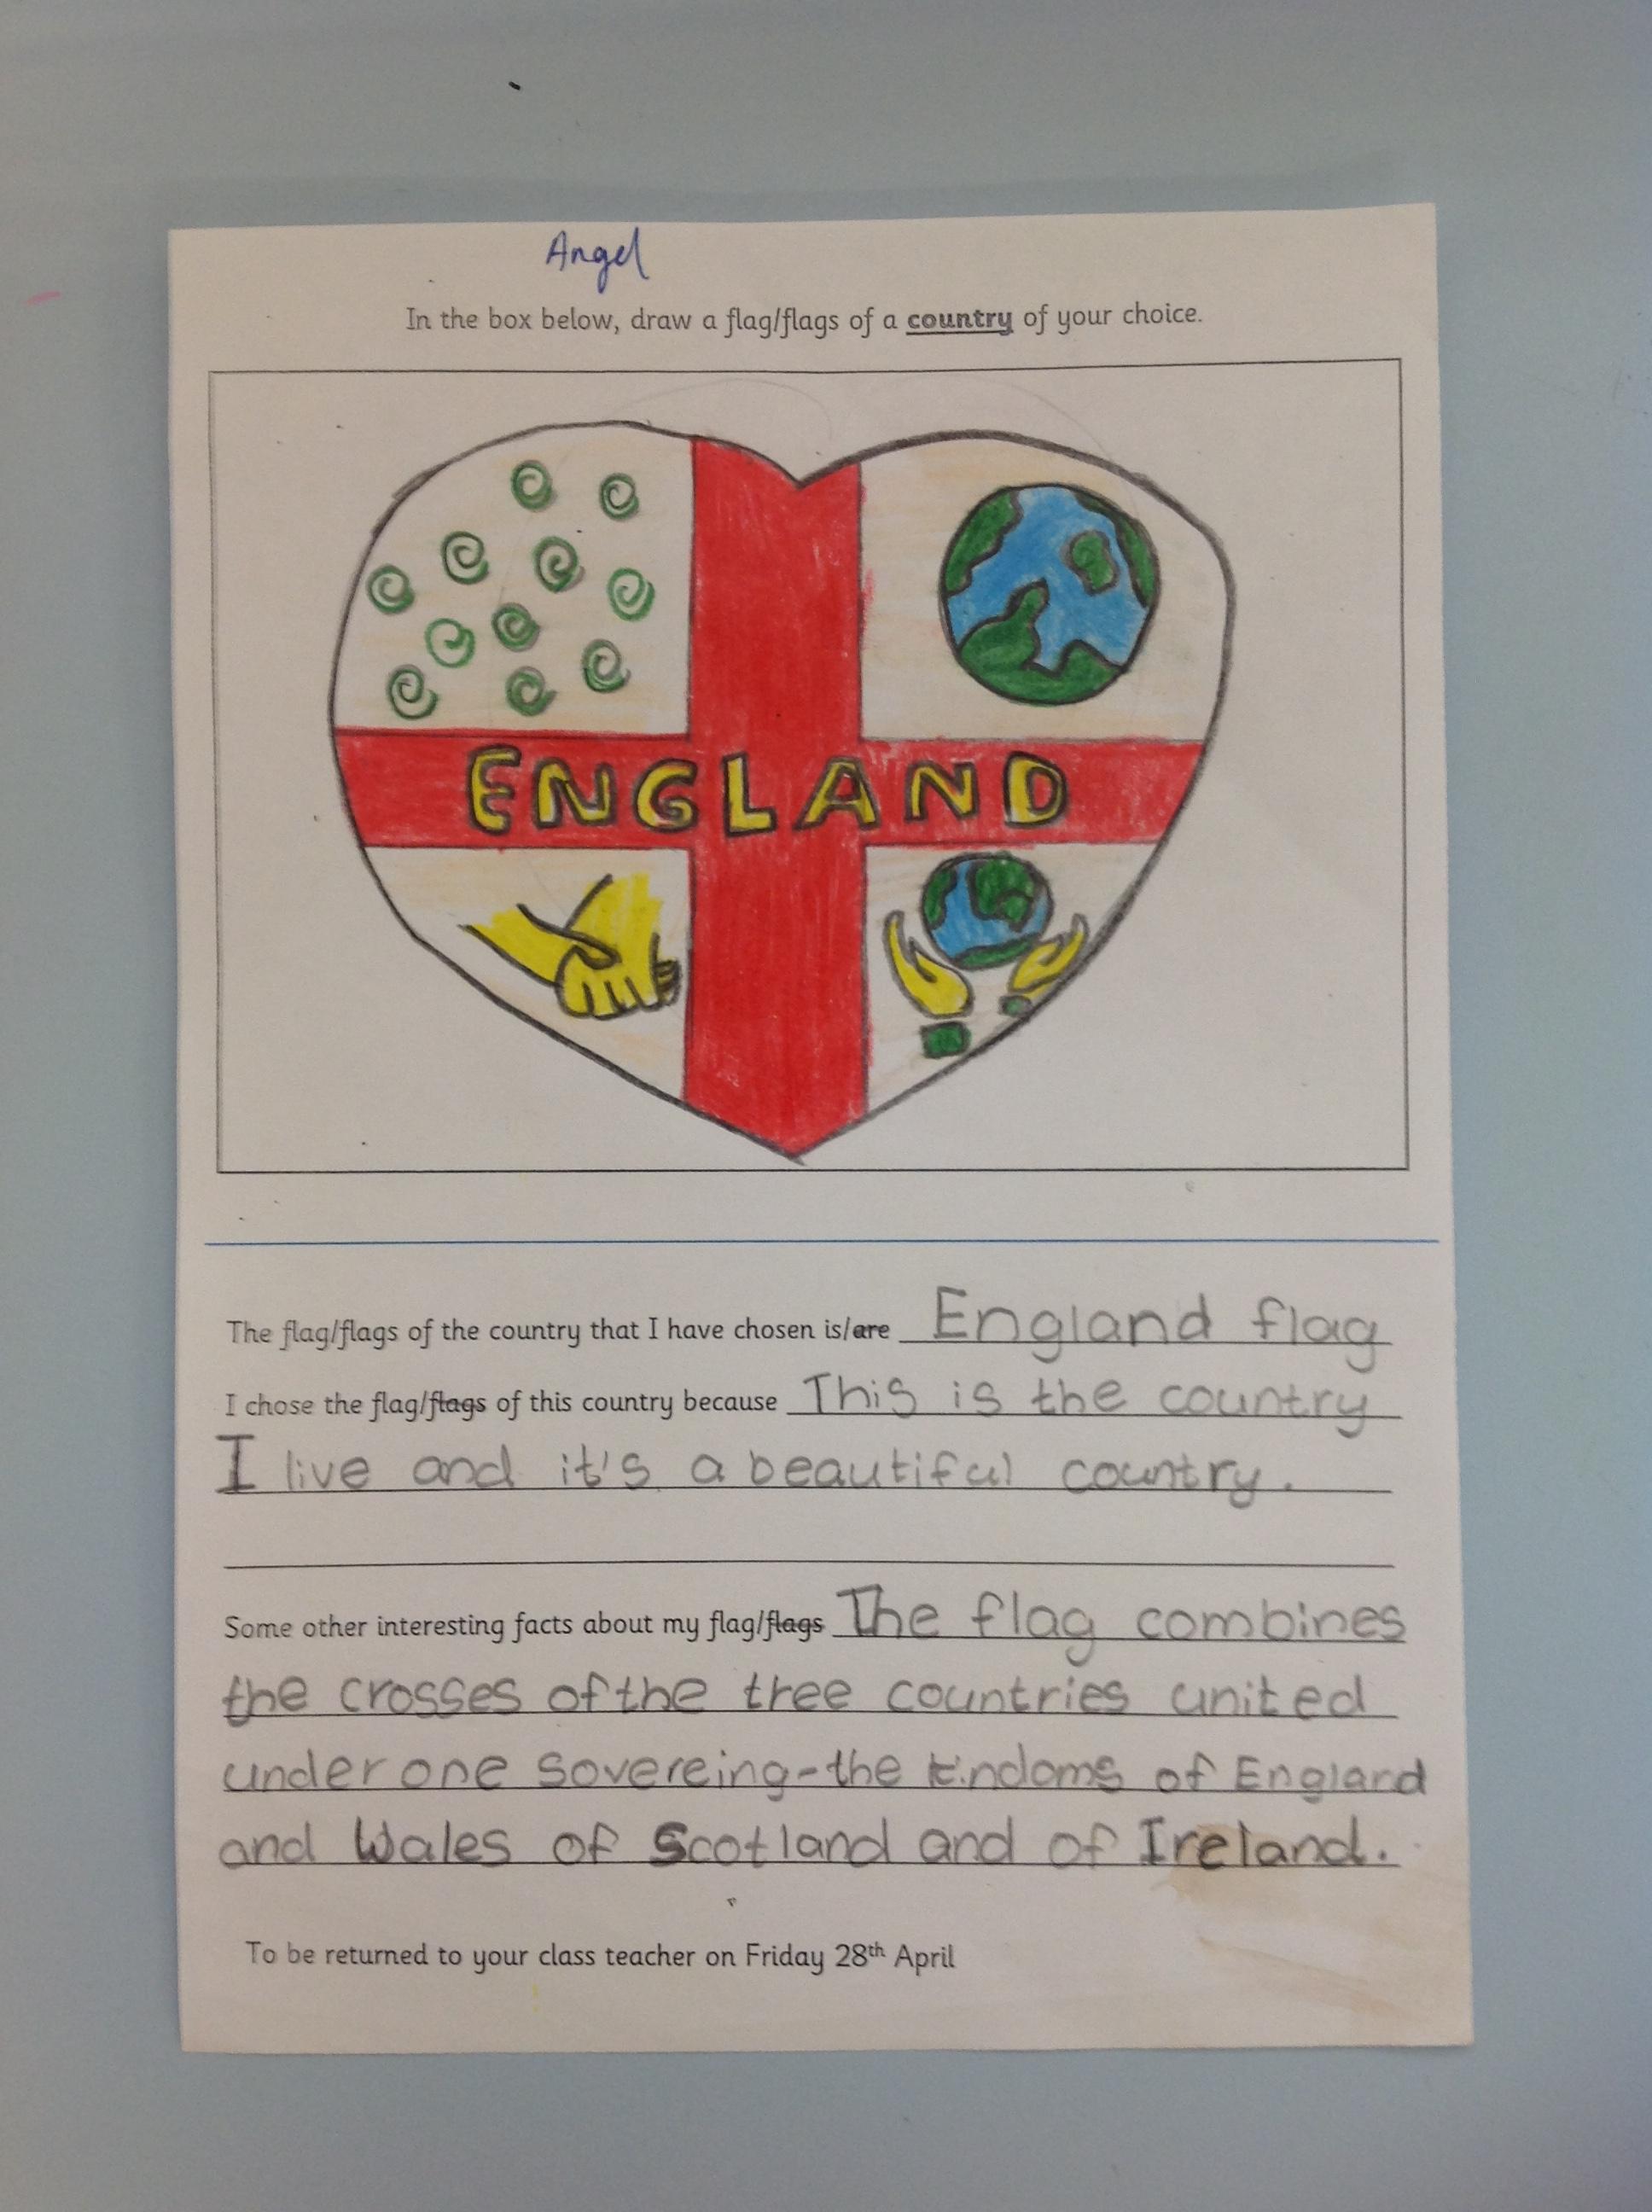 Angel
In the box below, draw a flag/flags of a country of your choice.
ENGLAND
The flag/flags of the country that I have chosen is/are England flag
I chose the flag/flags of this country because This is the country
I live and it's a beautiful country.
Some other interesting facts about my flag/flags The flag combines
the crosses of the tree countries united
under one sovereing-the kindoms of England
and Wales of Scotland and of Ireland.
To be returned to your class teacher on Friday 28th April